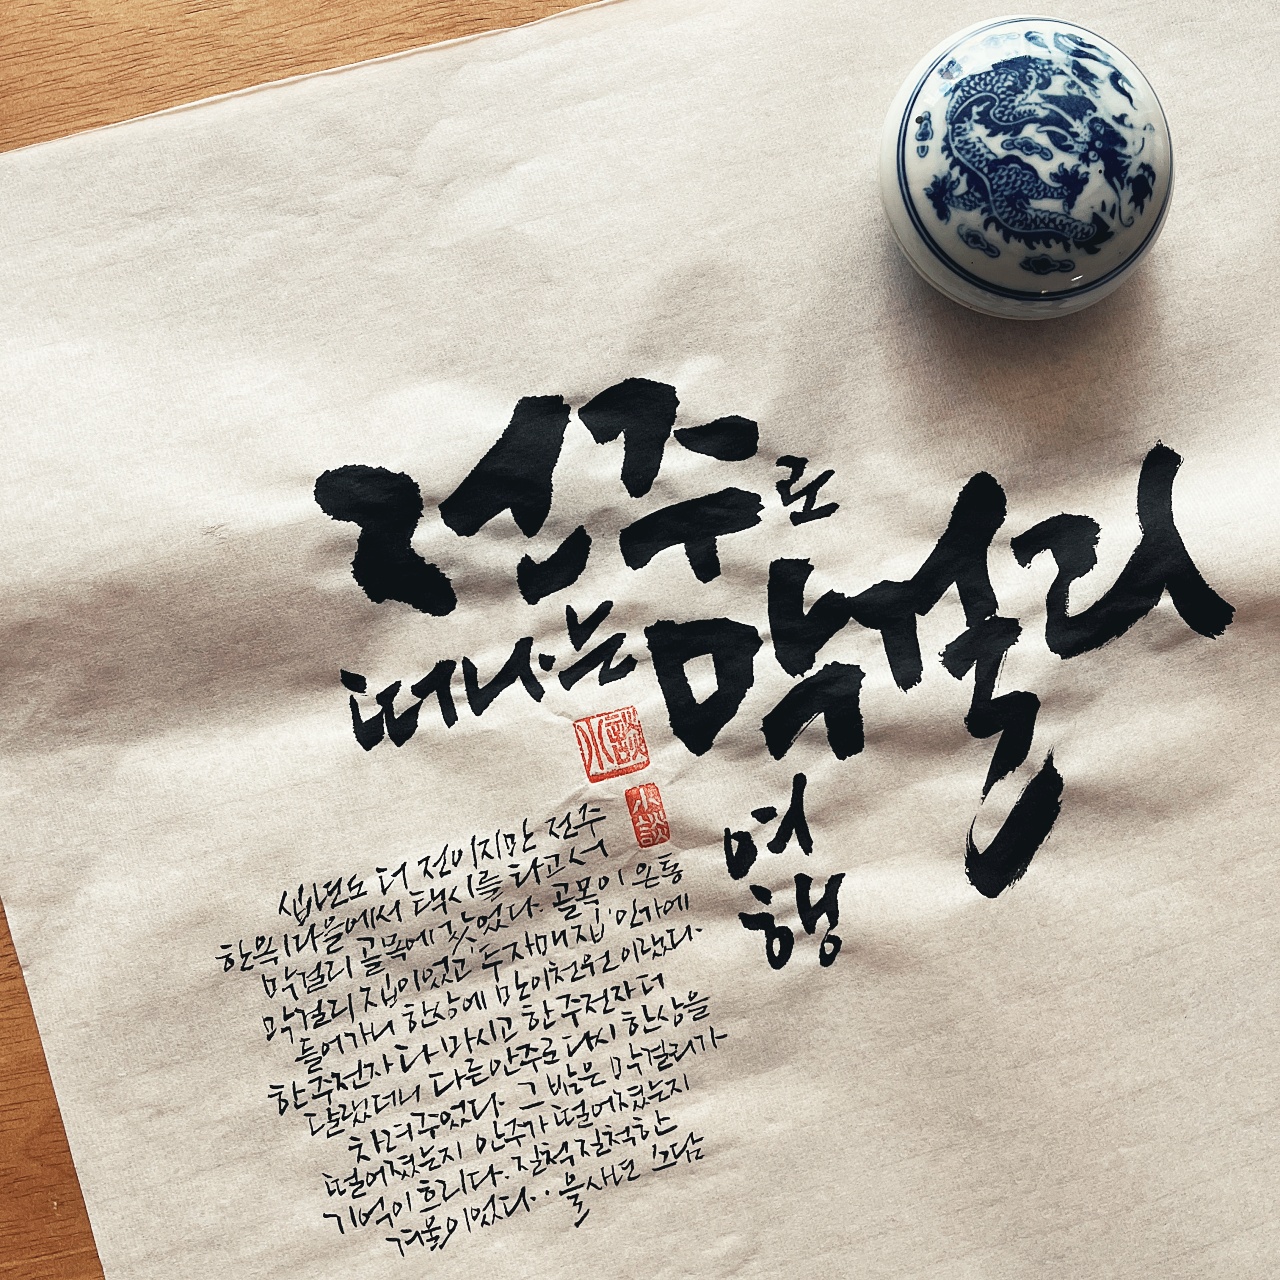 전주로
떠나는 막걸리
여행
水談
小談
십년도 더 전이지만 전주
한옥마을에서 택시를 타고서
막걸리 골목에 갔었다. 골목이 온통
막걸리 집이었고 '두자매집'인가에
들어가니 한상에 만이천원이랬다.
한주전자 다 마시고 한주전자 더
달랬더니 다른안주로 다시 한상을
차려주었다. 그 밤은 막걸리가
떨어졌는지 안주가 떨어졌는지
기억이 흐리다. 질척질척한
겨울이었다.. 을사년 소담